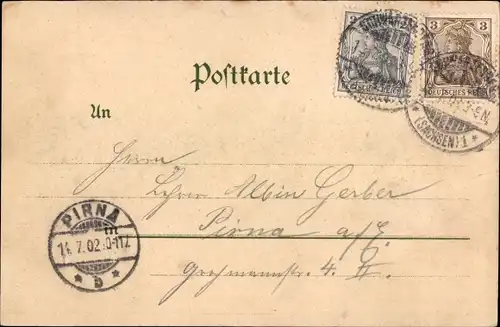 Postkarte
An
Herrn
Lehrer Albin Gerber
in
Pirna a/E.
Grohmannstr. 4. II.
PIRNA
14.7.02
* b *
3
DEUTSCHES REICH
(SACHSEN) 1